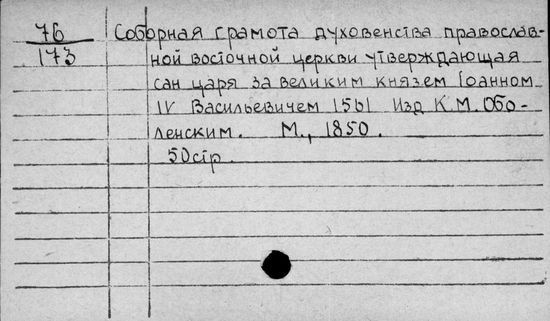 76 Соборная грамота духовенства православ-
173 ной восточной церкви утверждающая
сан царя за великим князем Iоанном
IV Васильевичем 1561 Изд К.М. Обо-
ленским. М., 1850.
50стр.